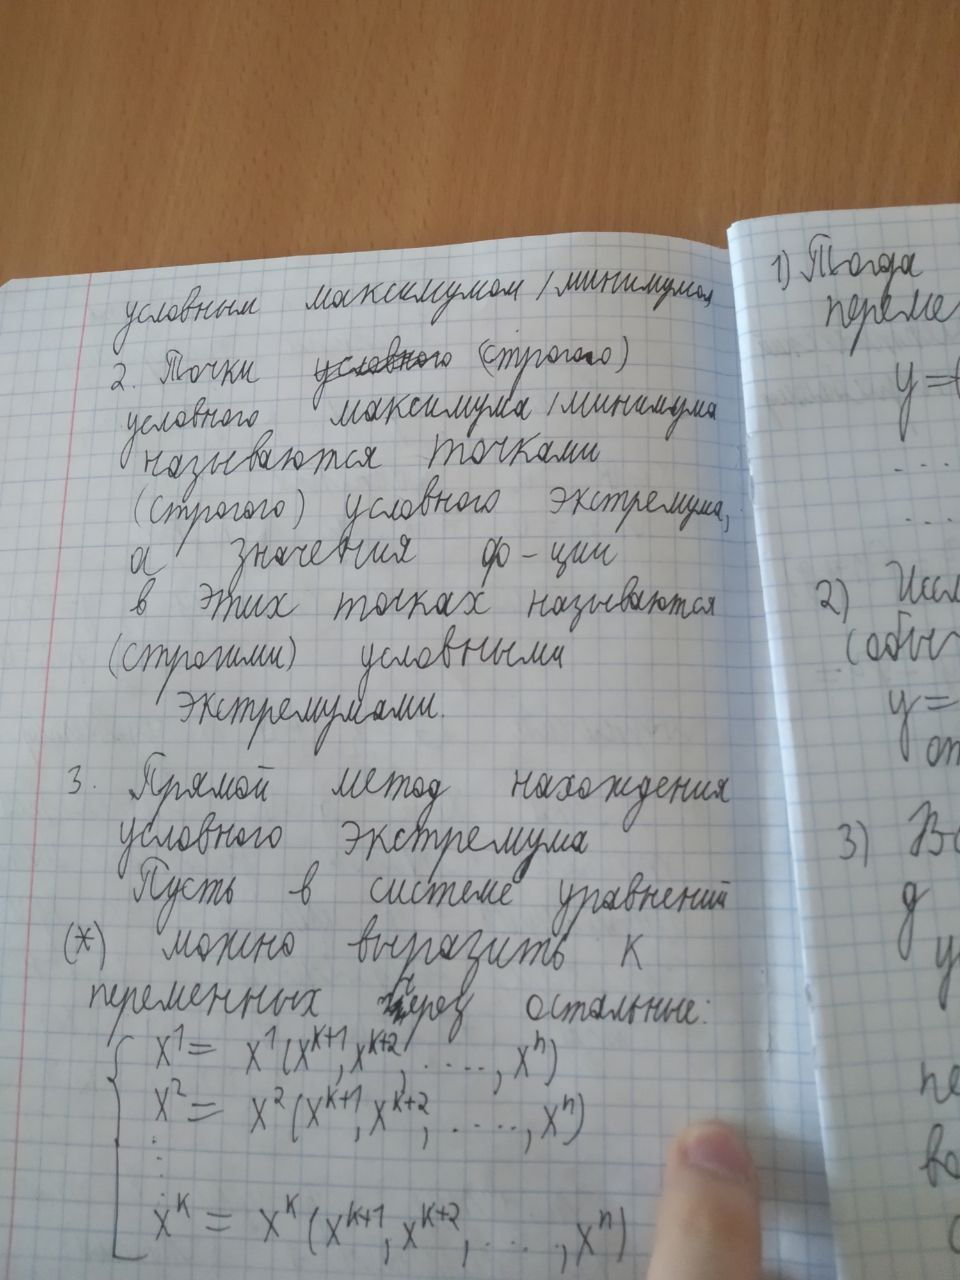 условным максимумом/минимумом
2. Точки условного (строгого)
условного максимума/минимума
называются точками
(строгого) условного экстремума,
а значения ф-ции
в этих точках называются
(строгими) условными
экстремумами.
3. Прямой метод нахождения
условного экстремума
Пусть в системе уравнений
(*) можно выразить k
переменных через остальные:
x¹ = x¹(xᵏ⁺¹, xᵏ⁺², ...., xⁿ)
x² = x²(xᵏ⁺¹, xᵏ⁺², ....., xⁿ)
⋮
xᵏ = xᵏ(xᵏ⁺¹, xᵏ⁺², ...., xⁿ)
1) Тогда
переме
y=
....
....
2) Иссл
(обы
y=
от
3)
д
y
пе
во